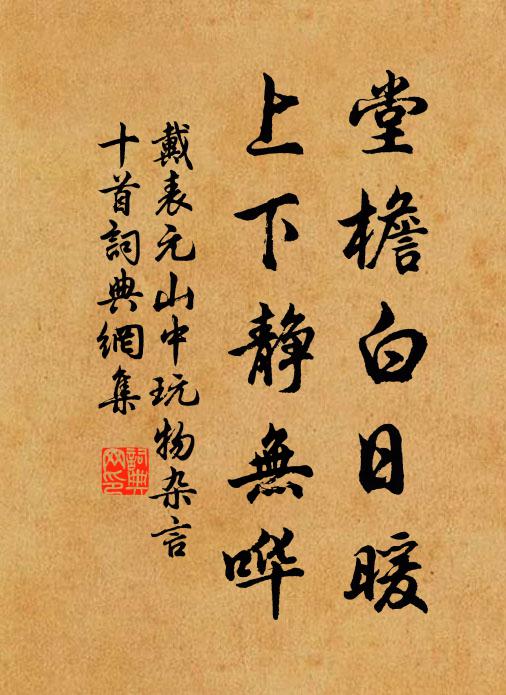 堂檐白日暖
上下静無哗
戴表元山中玩物杂言
十首詞典網集
詞典網印